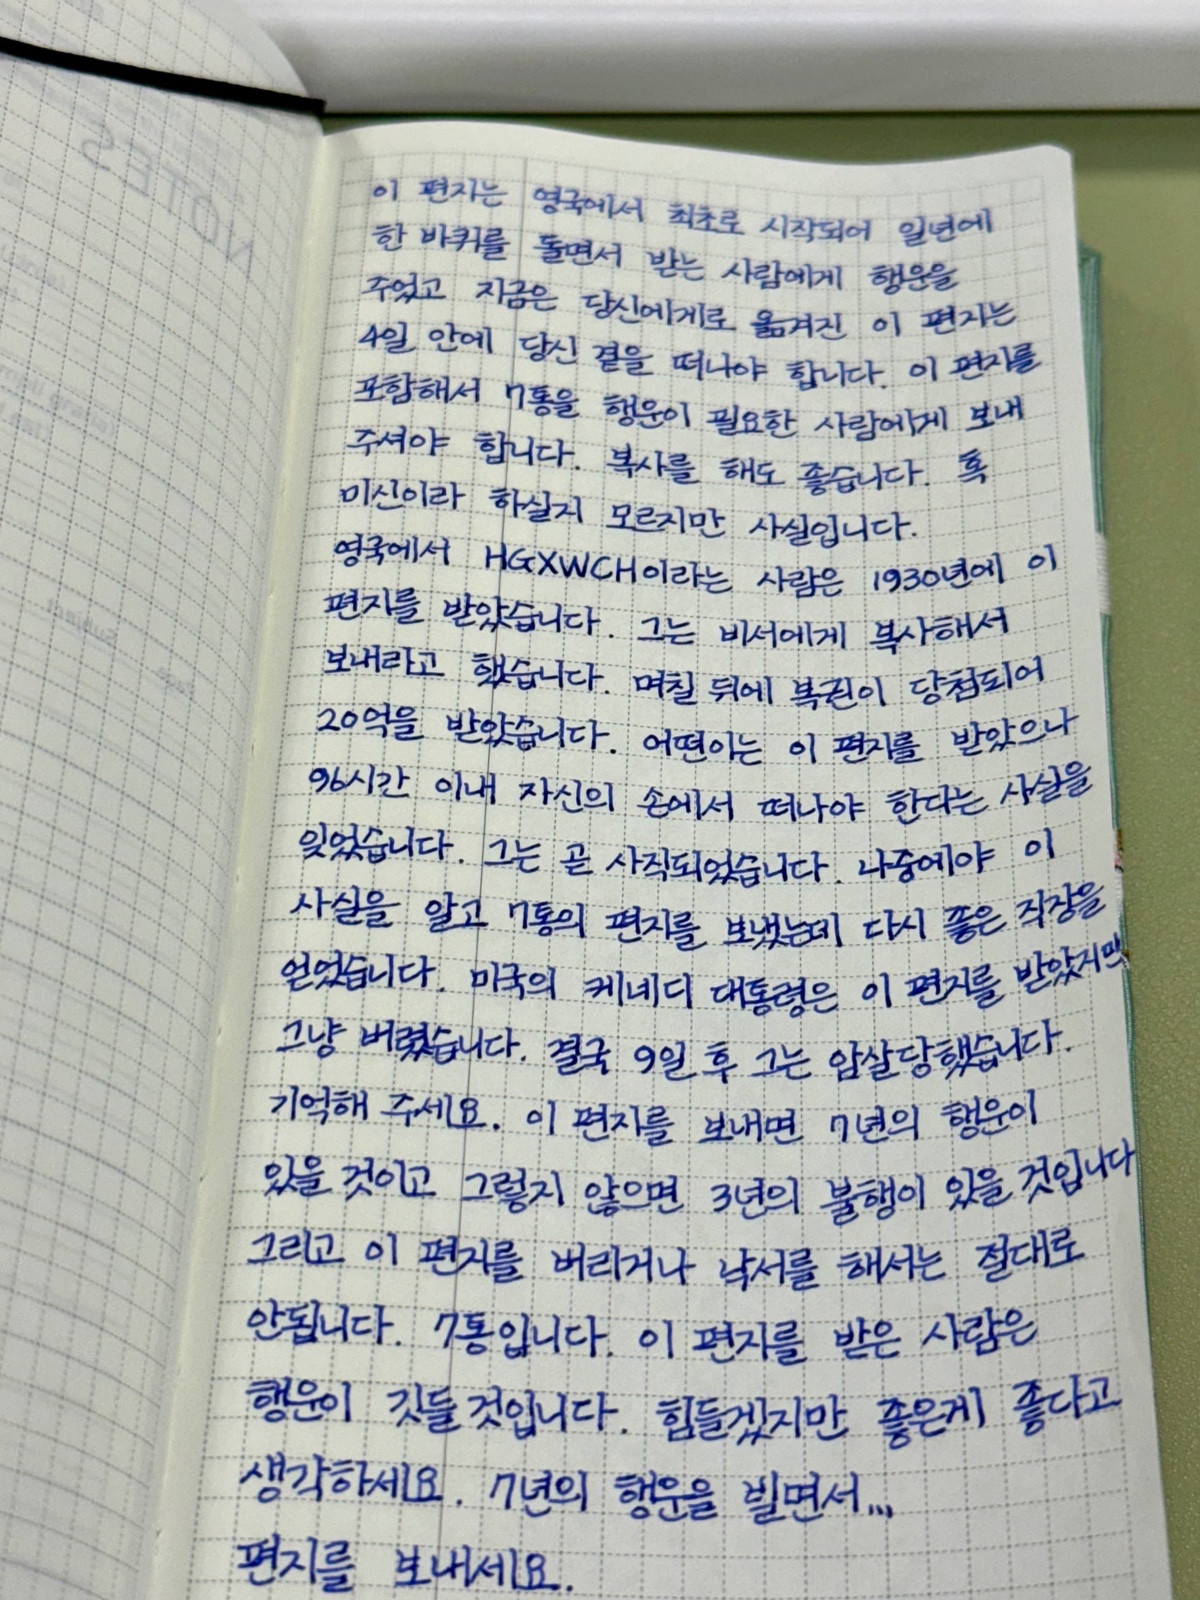 이 편지는 영국에서 최초로 시작되어 일년에
한 바퀴를 돌면서 받는 사람에게 행운을
주었고 지금은 당신에게로 옮겨진 이 편지는
4일 안에 당신 곁을 떠나야 합니다. 이 편지를
포함해서 7통을 행운이 필요한 사람에게 보내
주셔야 합니다. 복사를 해도 좋습니다. 혹
미신이라 하실지 모르지만 사실입니다.
영국에서 HGXWCH이라는 사람은 1930년에 이
편지를 받았습니다. 그는 비서에게 복사해서
보내라고 했습니다. 며칠 뒤에 복권이 당첨되어
20억을 받았습니다. 어떤이는 이 편지를 받았으나
96시간 이내 자신의 손에서 떠나야 한다는 사실을
잊었습니다. 그는 곧 사직되었습니다. 나중에야 이
사실을 알고 7통의 편지를 보냈는데 다시 좋은 직장을
얻었습니다. 미국의 케네디 대통령은 이 편지를 받았지만
그냥 버렸습니다. 결국 9일 후 그는 암살당했습니다.
기억해 주세요. 이 편지를 보내면 7년의 행운이
있을 것이고 그렇지 않으면 3년의 불행이 있을 것입니다
그리고 이 편지를 버리거나 낙서를 해서는 절대로
안됩니다. 7통입니다. 이 편지를 받은 사람은
행운이 깃들 것입니다. 힘들겠지만 좋은게 좋다고
생각하세요. 7년의 행운을 빌면서...
편지를 보내세요.
NOTES